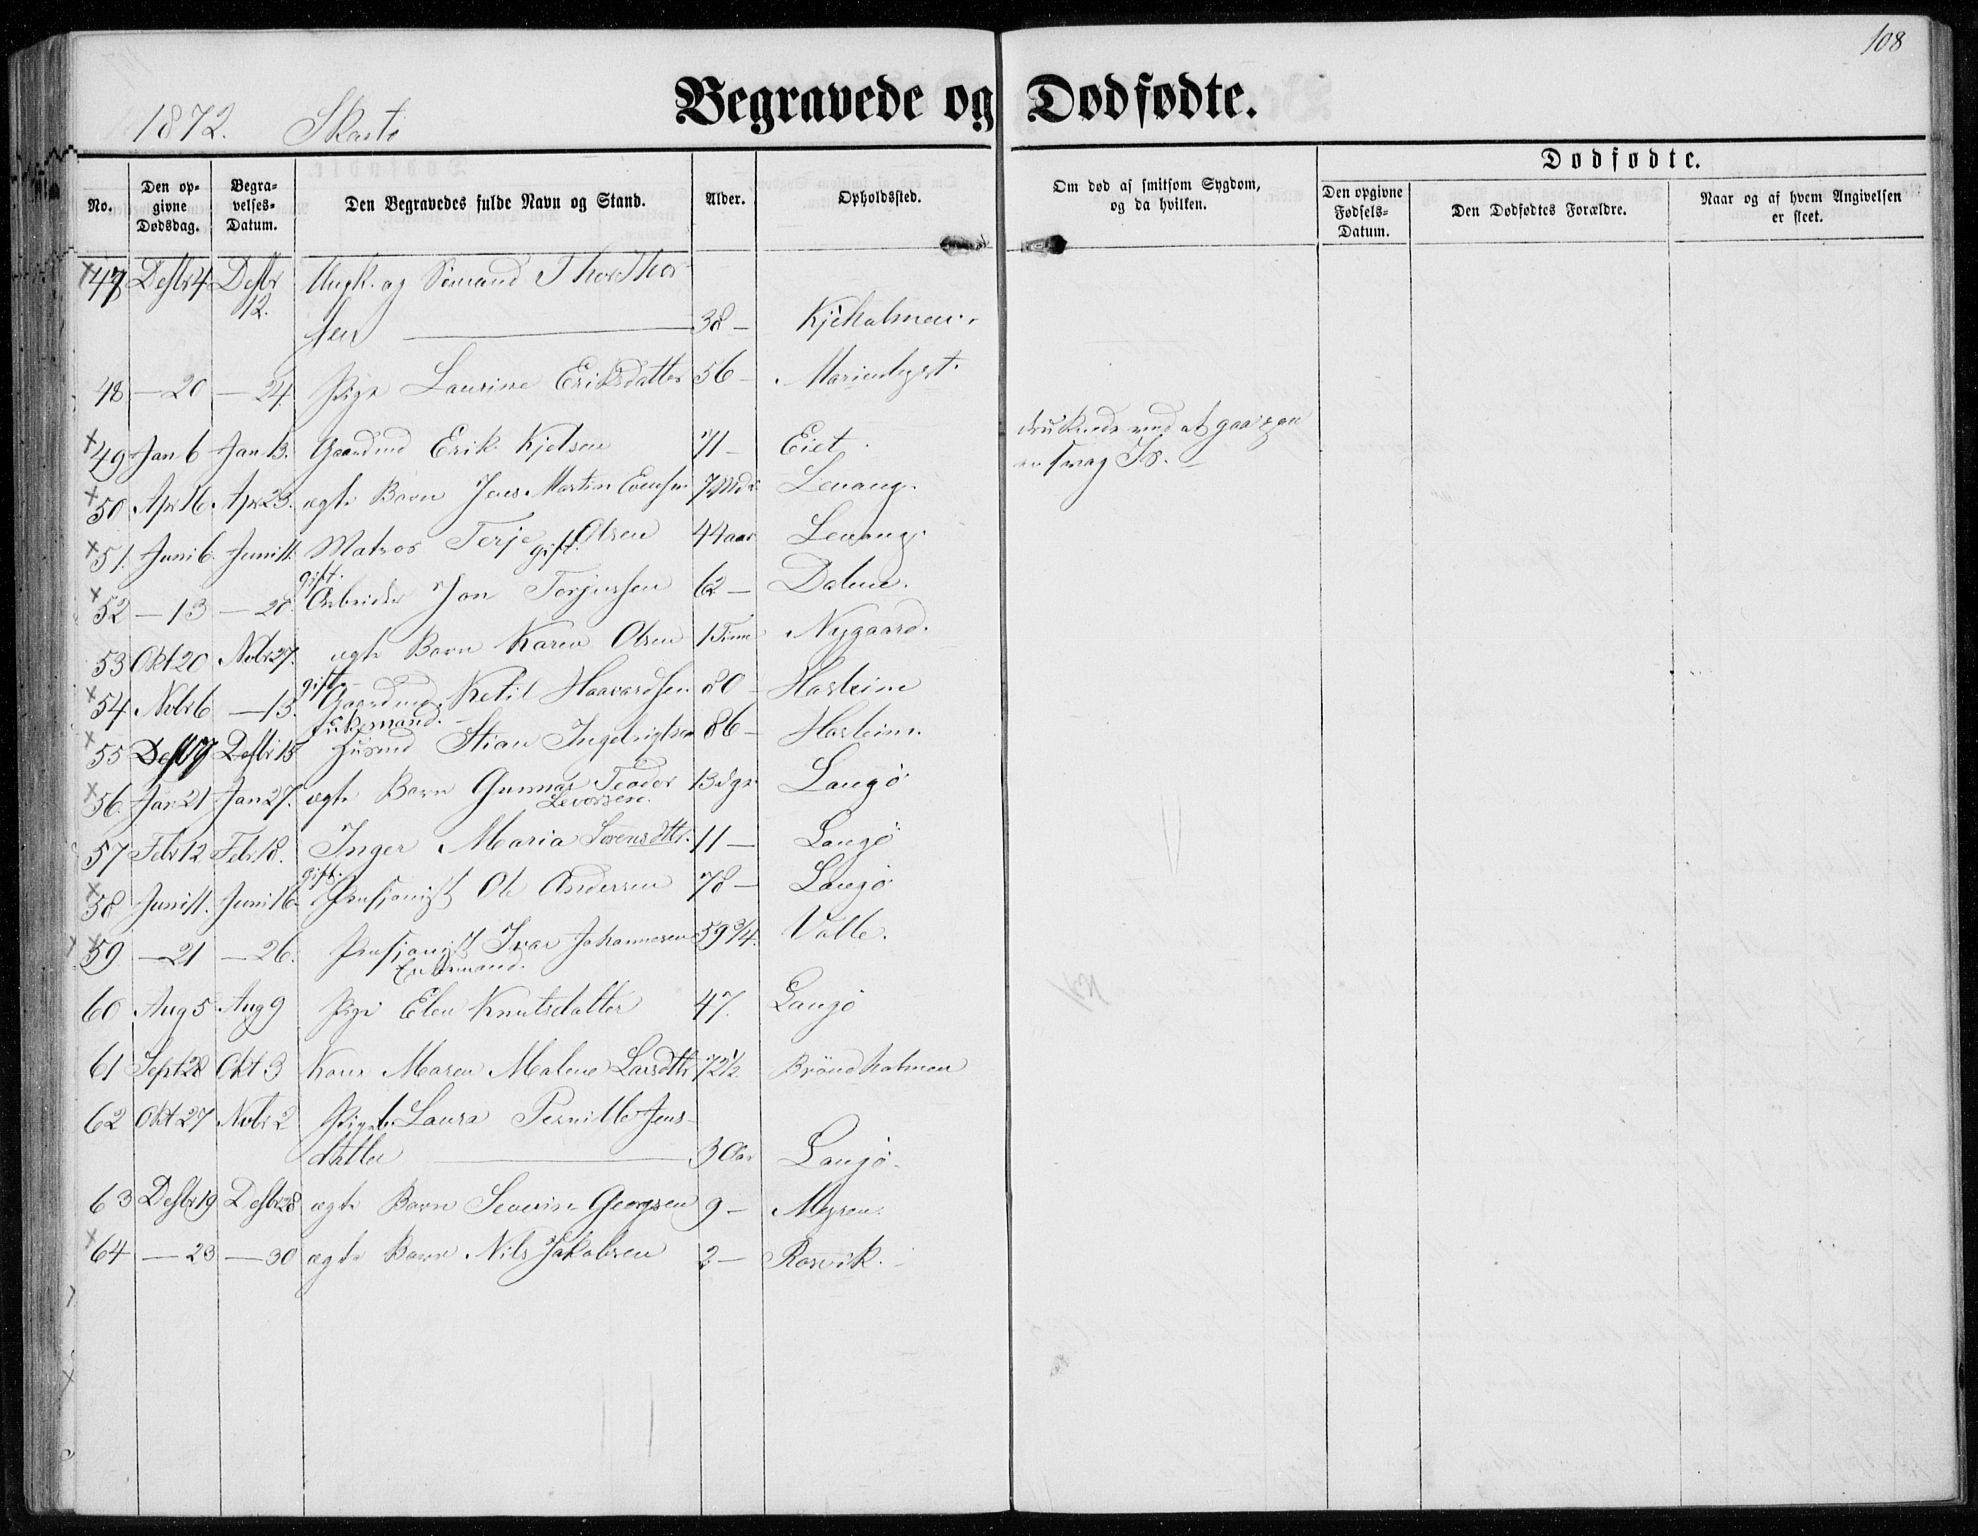 108
1872. Skaatø
Begravede og Dødfødte.
No.
Den op-
givne
Dødsdag.
Begra-
velses-
Datum.
Den Begravedes fulde Navn og Stand.
Alder.
Opholdssted.
Om død af smitsom Sygdom,
og da hvilken.
Dødfødte.
Den opgivne
Fødsels-
Datum.
Den Dødfødtes Forældre.
Naar og af hvem Angivelsen
er skeet.
47 Desbr 4. Desbr 12. Ungk. og Sømand Thor Thor-
sen 38 –
48 — 20 — 24. Pige Laurine Eriksdatter 56 – Marienlyst.
49 Jan 6 Jan 13. Gaardmd Erik Kjelsen 71 – Eiet. druknede ved at gaa paa
svag Is.
50 Apr 16. Apr 23. ægte Barn Jens Martin Evensen 7 Mdr Levang.
51. Juni 6. Juni 11. Matros Terje Olsen gift. 44 aar Levang.
52 — 13 — 20. gift. Arbeider Jon Torjussen 62 – Dalene.
53 Okt 20 Nvbr 27. ægte Barn Karen Olsen 1 Time Nygaard.
54 Nvbr 6 — 13. gift. Gaardmd. Ketil Haavardsen 80 –
55 Desbr 15 Enkemand. Husmd Stian Ingebrigtsen 86 –
56. Jan 21 Jan 27. ægte Barn Gunnar Teodor
Levorsen. 13 dgr Langø
57 Febr 12 Febr 18. Inger Maria Sørensdtr. 11 — Langø
58 Juni 11. Juni 16. gift. Ole Andersen 78 – Langø
59 — 21 — 26. Ivar Johannesen
Enkemand. 59 3/4. Valle.
60 Aug 5 Aug 9 Pige Elen Knutsdatter 47. Langø
61 Sept 28 Okt 3 Kone Maren Malene Larsdtr 72 1/2 Brøndholmen
62 Okt 27 Nvbr 2 Laura Pernille Jens-
datter 3 Aar Langø.
63 Desbr 19 Desbr 28 ægte Barn Severin Georgsen 9 – Myren.
64 — 23 — 30 ægte Barn Nils Jakobsen 2 — Rørvik.